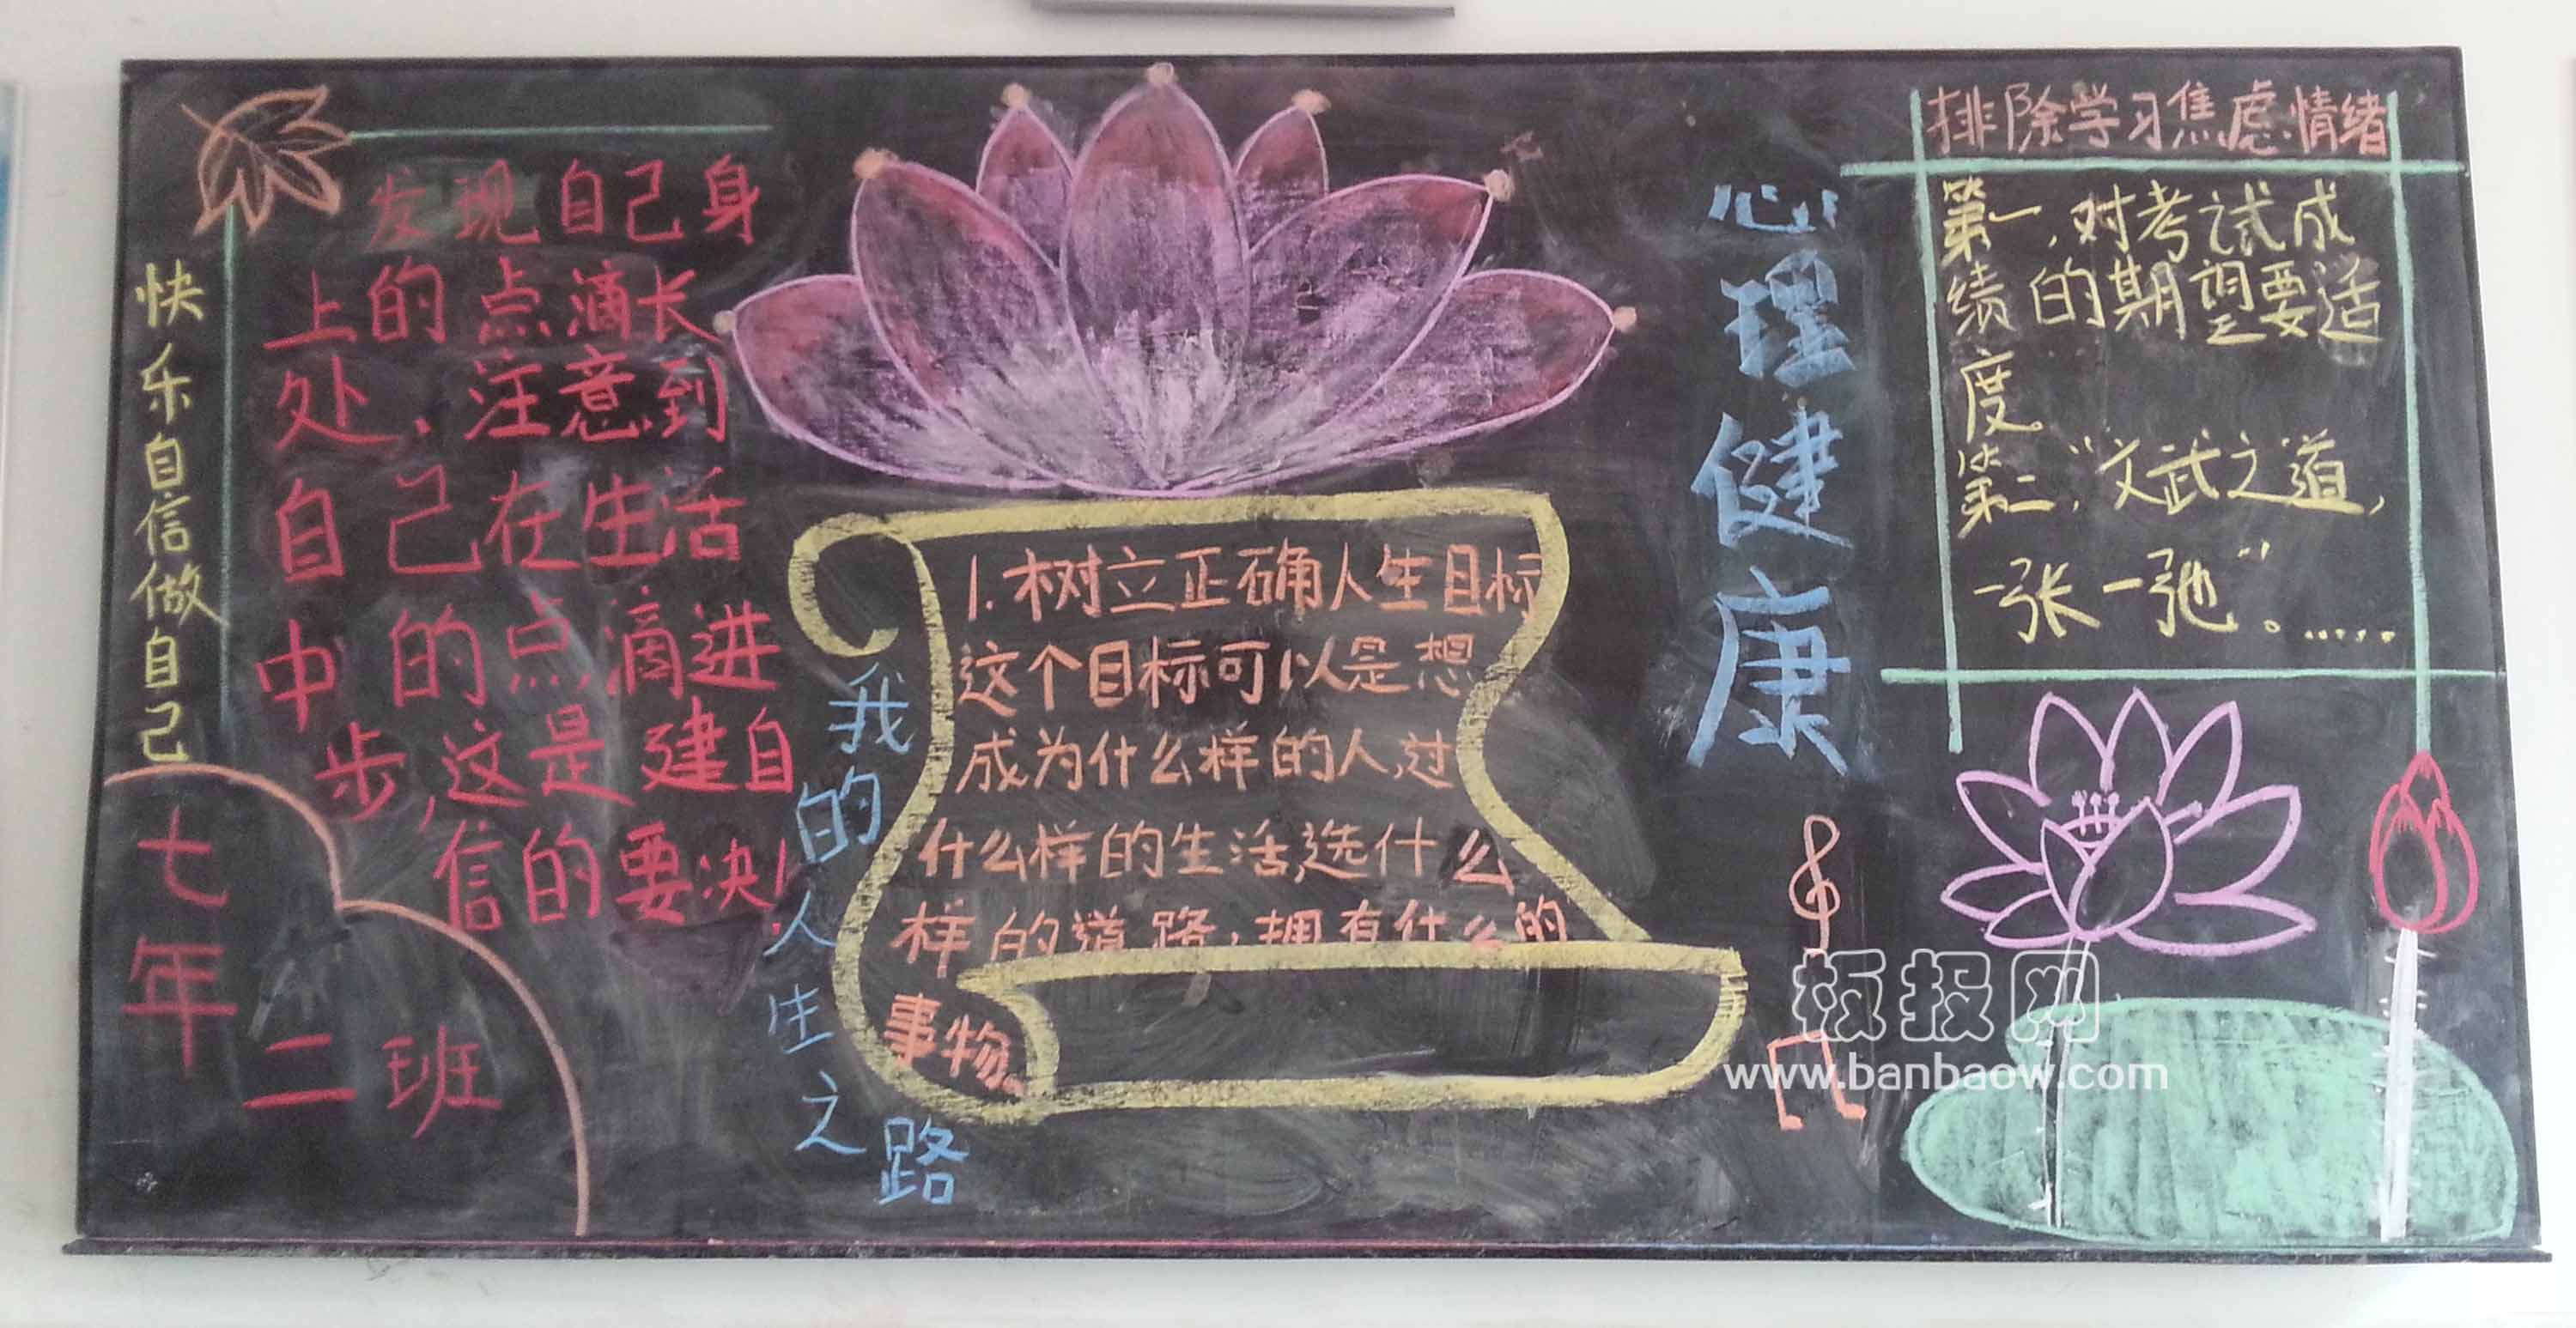 快乐自信做自己
发现自己身
上的点滴长
处、注意到
自己在生活
中的点滴进
步,这是建自
信的要决!
七年
二班
我的人生之路
1.树立正确人生目标
这个目标可以是想
成为什么样的人,过
什么样的生活,选什么
样的道路,拥有什么的
事物
心理健康
排除学习焦虑情绪
第一,对考试成
绩的期望要适
度
第二,“文武之道,
一张一弛”。……
板报网
www.banbaow.com